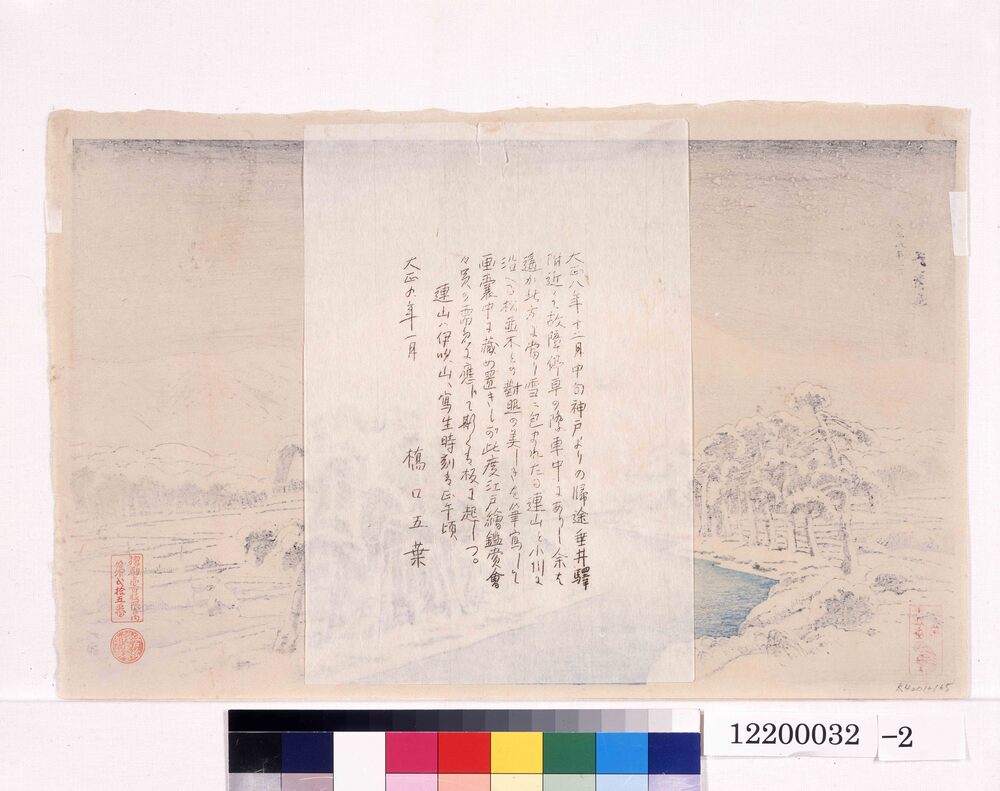 大正八年十二月中旬神戸よりの帰途垂井驛
附近にて故障停車の際車中にありし余は
遙か北方に當り雪に包まれたる連山と小川に
沿へる松並木との對照の美しきを筆寫して
画嚢中に藏め置きしが此度江戸繪鑑賞會
々員の需めに應じて斯くは板に起しつ。
連山ハ伊吹山、寫生時刻は正午頃
大正九年一月
橋口五葉
12200032 -2